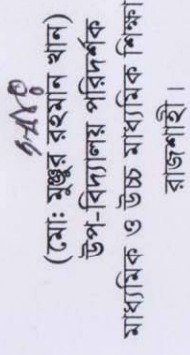 (মো: মুঞ্জুর রহমান খান)
উপ-বিদ্যালয় পরিদর্শক
মাধ্যমিক ও উচ্চ মাধ্যমিক শিক্ষা
রাজশাহী।